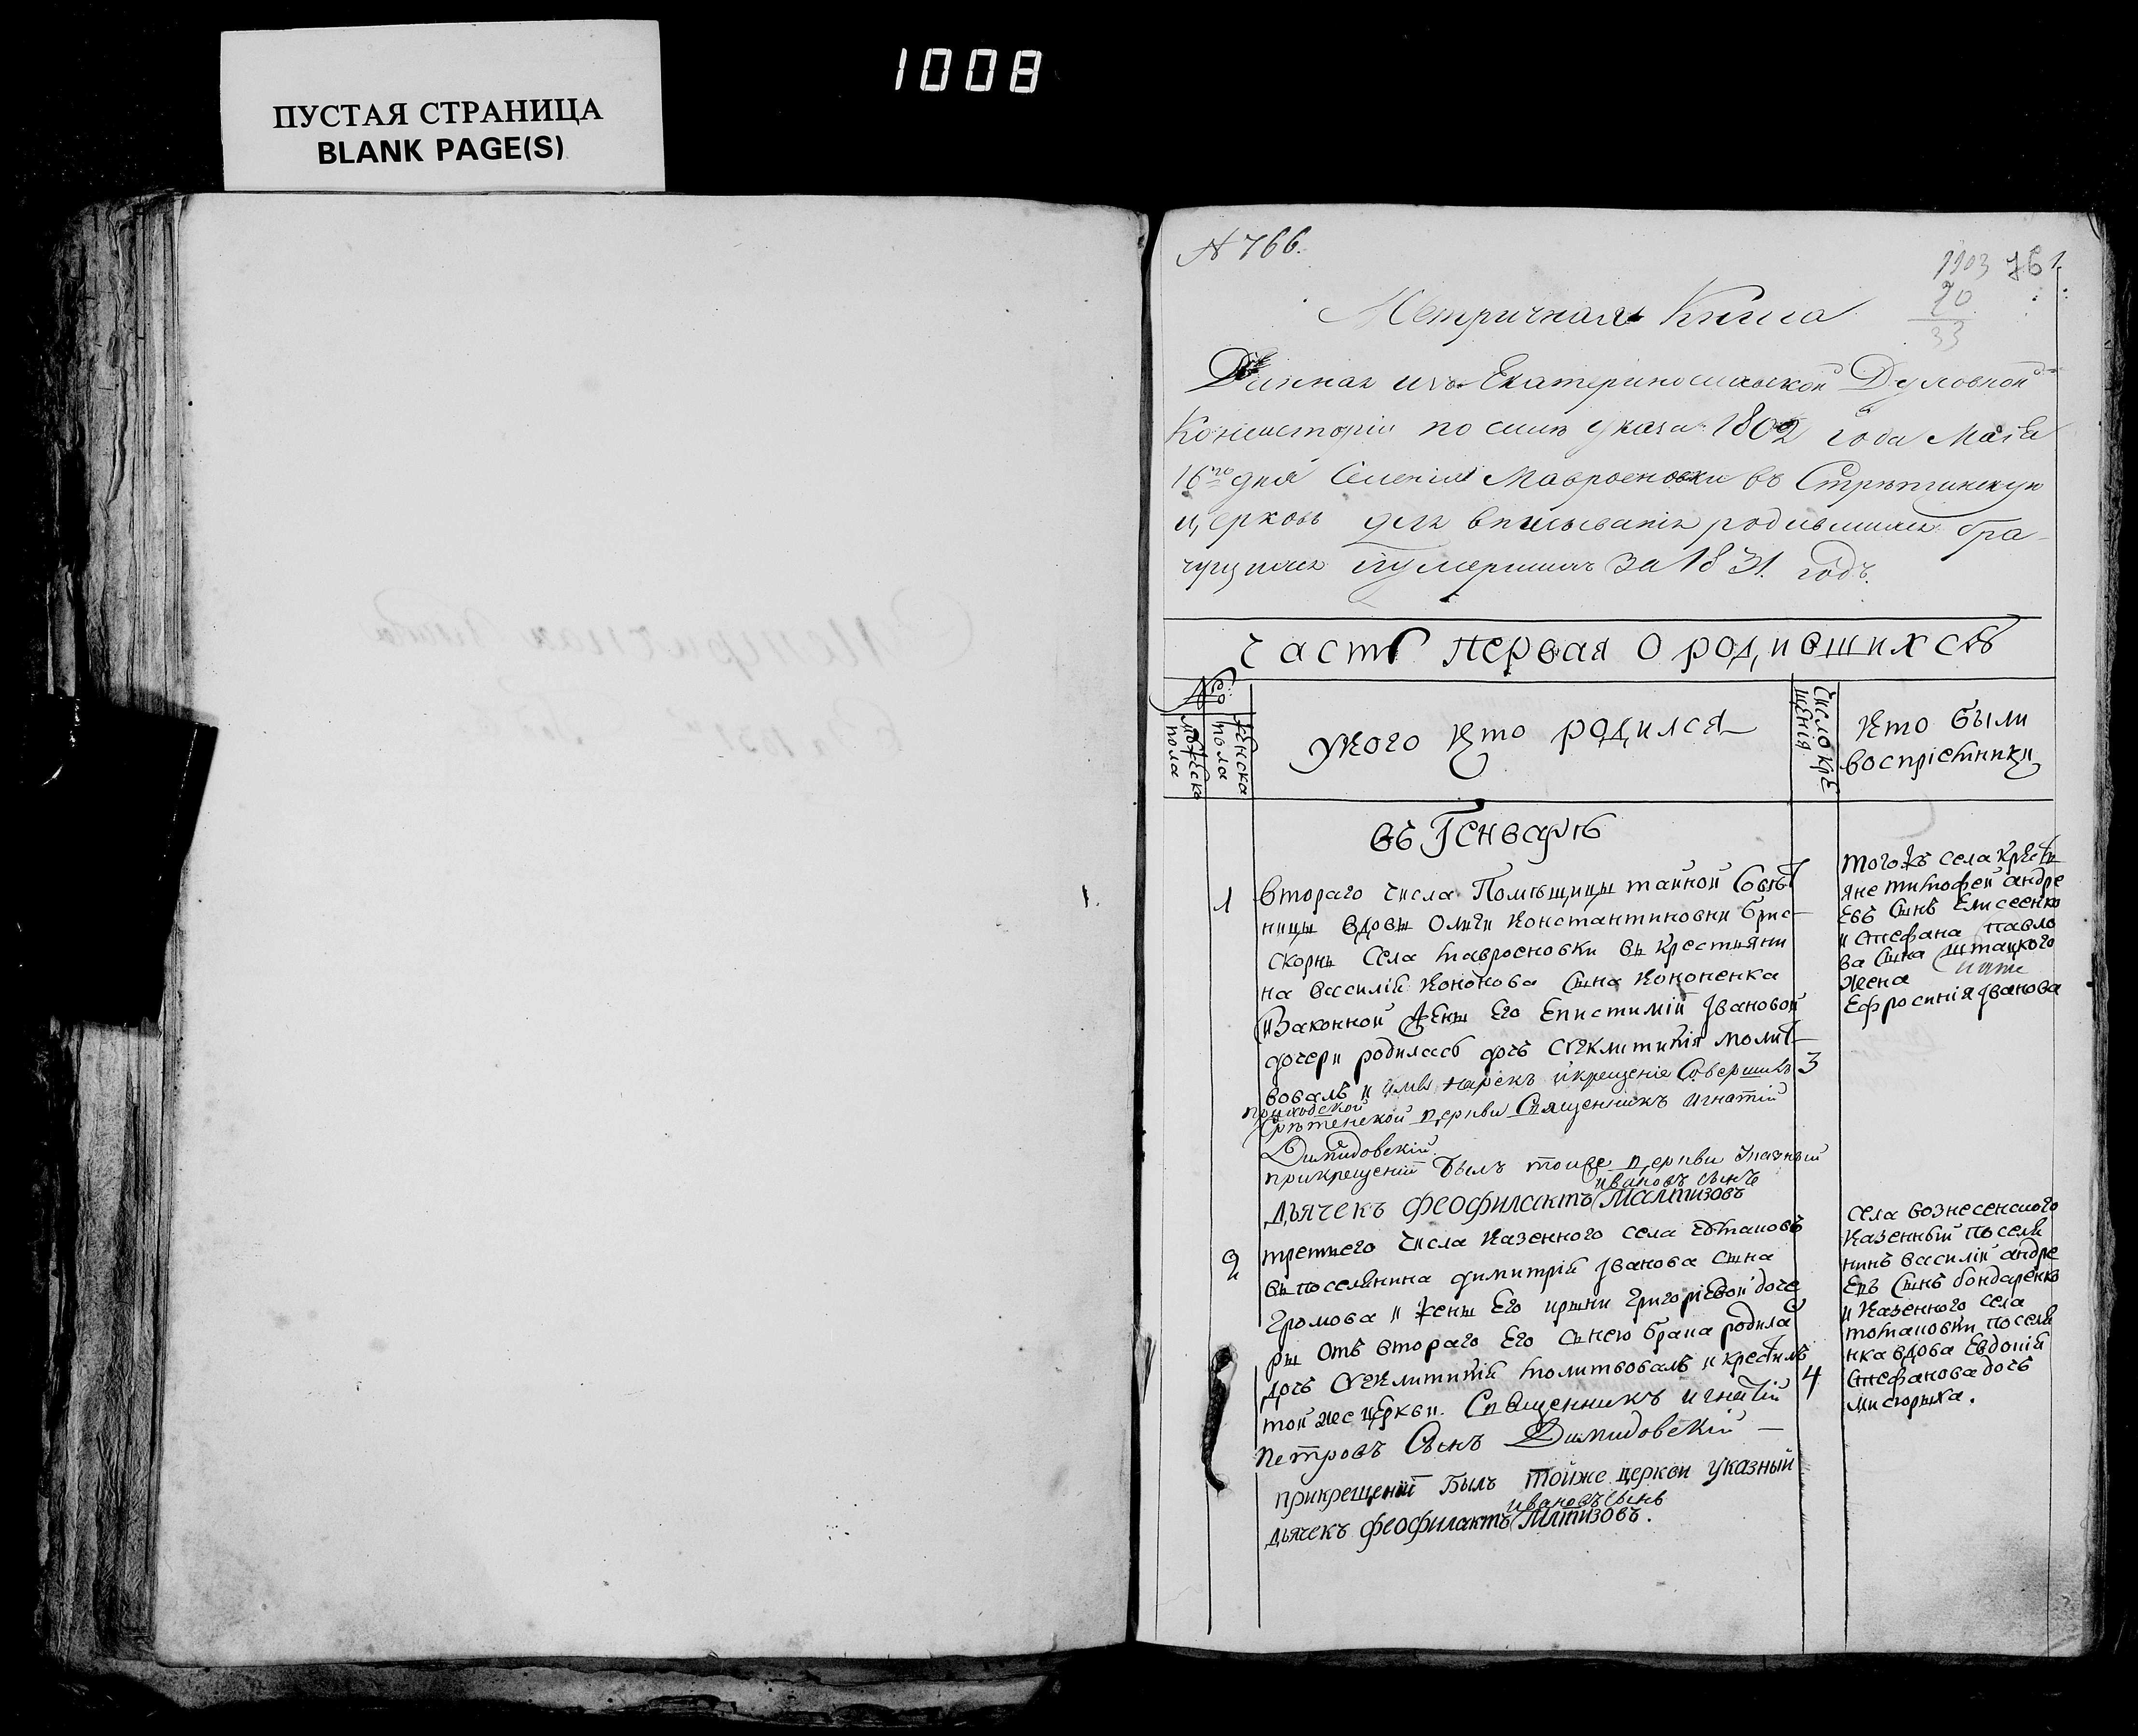 ПУСТАЯ СТРАНИЦА
BLANK PAGE(S)
1008
1.
№ 766.
1103 761
70
33
Метричная Книга
Данная изъ Екатеринославской Духовной
Консисторіи по силѣ указа 1802 года Маія
16го дня Селенія Мавроеновки въ Стрѣтинскую
церковь для вписыванія родившихся бра-
чущихся и умершихъ за 1831. годъ.
Часть первая о родившихся
№
мужеска пола
женска пола
у кого кто родился
Число крещенія
Кто были
воспріемники
въ Генварѣ
1
втораго числа Помѣщицы тайной Совѣт
ницы вдовы Олги Константиновни Брис-
скорнъ Села мавроеновки въ крестьяни
на василій Кононова сына Кононенка
и Законной жены Его Епистиміи Івановой
дочери родилась дочь Сѵгклитикія молит-
вовалъ и имя нарекъ и крещеніе Совершилъ
3
приходской
Срѣтенской церкви Священникъ Игнатій
Димидовскій.
прикрещеніи былъ тоиже церкви Указный
ивановъ сынъ
дьячекъ Феофилактъ
тогожъ села крестья
яне тимофей андре
евъ сынъ Елисеенко
и стефана павло
ва сына штацкого
жена
Ефросинія Іванова
2
третьего числа казенного села
въ поселянина димитрій Іванова сына
Громова и жены Его ирыни Григоріевой доче
ры Отъ втораго Его снею брака родила
дочь Сѵгклитикій молитвовалъ и крестилъ
4
той же церкви. Священникъ игнатій
Петровъ Сынъ Димидовскій —
прикрещеніи былъ тойже церкви указный
ивановъ сынъ
дьячекъ Феофилактъ
села вознесенского
казенный посели
нинъ василій андре
евъ сынъ бондаренко
и казенного села
поселя
нка вдова Евдокій
стефанова дочь